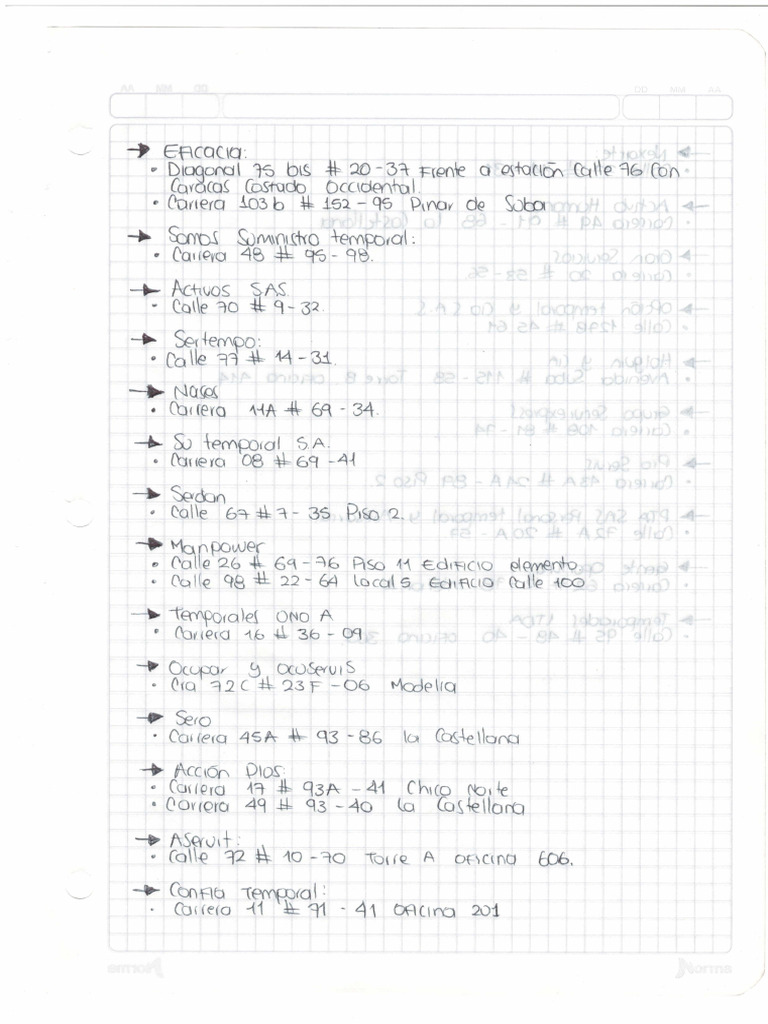 AA MM DD
DD MM AA
→ Eficacia:
• Diagonal 75 bis # 20-37 Frente a estación Calle 76 Con
Caracas Costado Occidental.
• Carrera 103b # 152-95 Pinar de Suba
→ Somos Suministro temporal:
• Carrera 48 # 95-98.
→ Activos S.A.S.
• Calle 70 # 9-32.
→ Sertempo:
• Calle 77 # 14-31.
→ Nases
• Carrera 11A # 69-34.
→ Su temporal S.A.
• Carrera 08 # 69-41
→ Serdan
• Calle 67 # 7-35 Piso 2.
→ Manpower
• Calle 26 # 69-76 Piso 11 Edificio elemento
• Calle 98 # 22-64 local 5 Edificio Calle 100
→ Temporales UNO A
• Carrera 16 # 36-09
→ Ocupar y ocuservis
• Cra 72C # 23F-06 Modelia
→ Sero
• Carrera 45A # 93-86 la Castellana
→ Acción Plos:
• Carrera 17 # 93A-41 Chico Norte
• Carrera 49 # 93-40 la Castellana
→ Aservit:
• Calle 72 # 10-70 Torre A oficina 606.
→ Confia Temporal:
• Carrera 11 # 71-41 Oficina 201
Norma